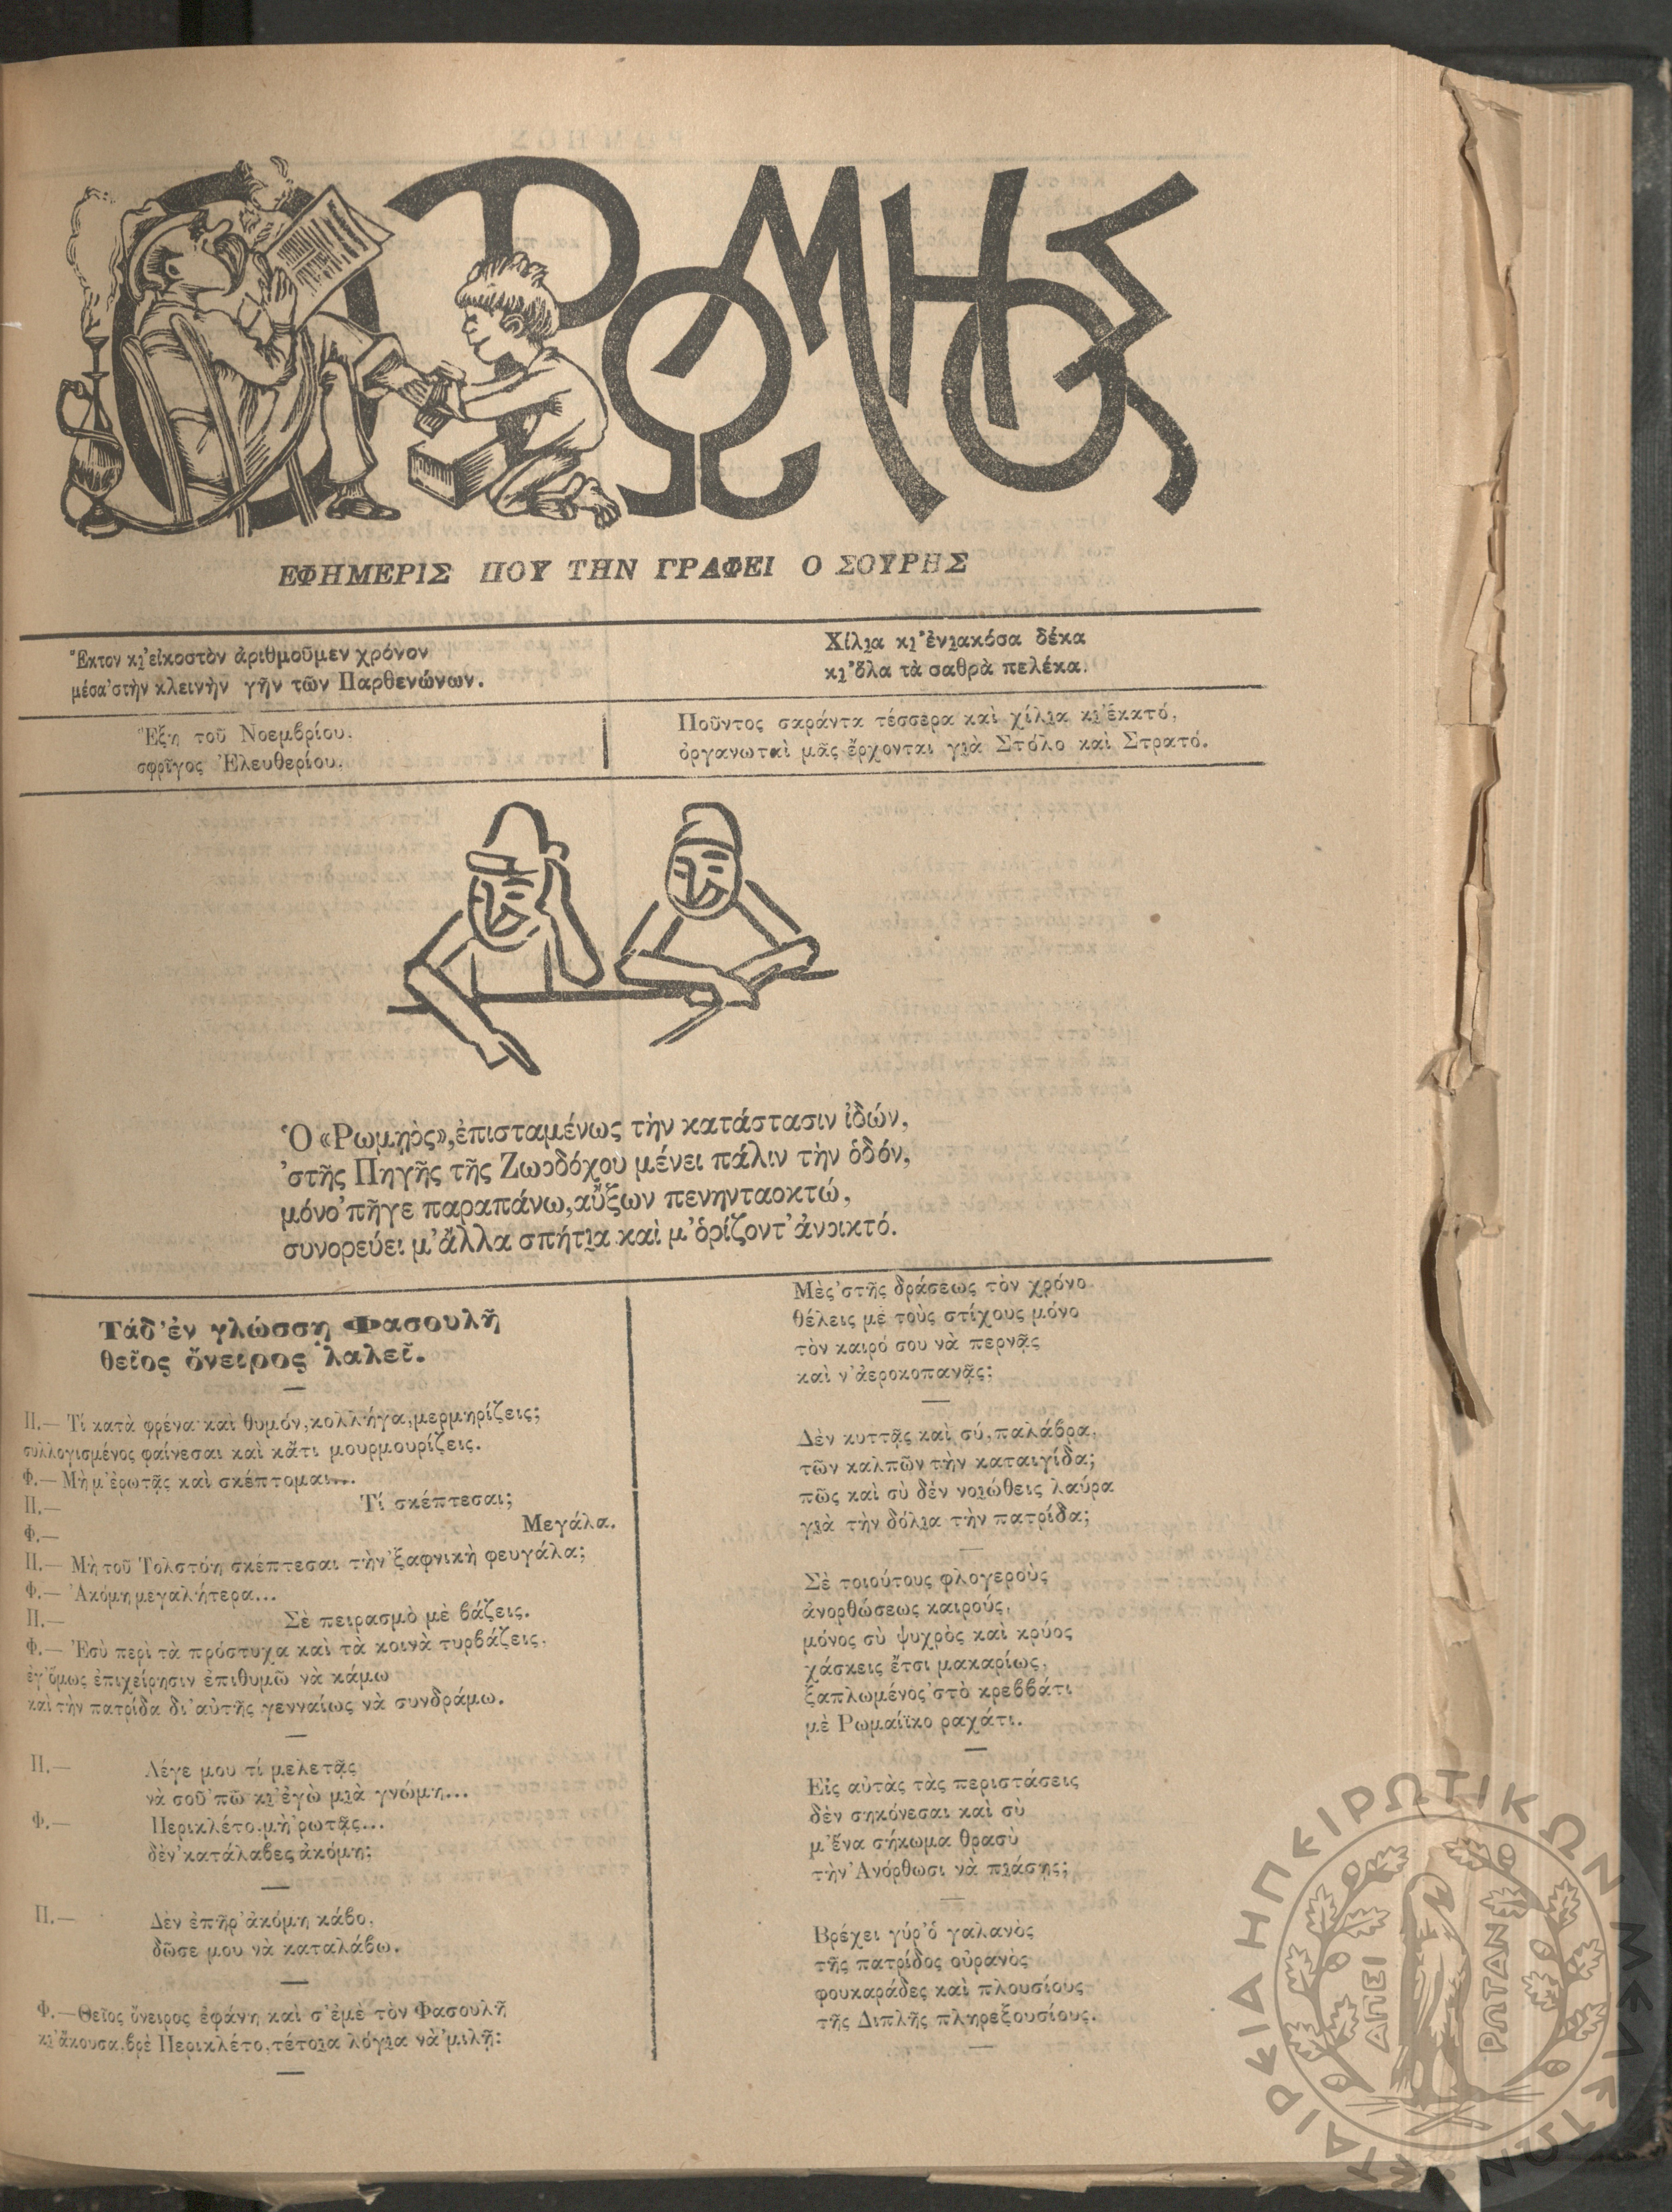 Ο ΡΩΜΗΟΣ
ΕΦΗΜΕΡΙΣ ΠΟΥ ΤΗΝ ΓΡΑΦΕΙ Ο ΣΟΥΡΗΣ
Ἕκτον κι’ εἰκοστὸν ἀριθμοῦμεν χρόνον
μέσα ’στὴν κλεινὴν γῆν τῶν Παρθενώνων.
Χίλια κι’ ἐνιακόσα δέκα
κι’ ὅλα τὰ σαθρὰ πελέκα.
Ἕξη τοῦ Νοεμβρίου,
σφρῖγος Ἐλευθερίου.
Ποῦντος σαράντα τέσσερα καὶ χίλια κι’ ἑκατό,
ὀργανωταὶ μᾶς ἔρχονται γιὰ Στόλο καὶ Στρατό.
Ὁ «Ρωμηὸς», ἐπισταμένως τὴν κατάστασιν ἰδών,
’στῆς Πηγῆς τῆς Ζωοδόχου μένει πάλιν τὴν ὁδόν,
μόνο ’πῆγε παραπάνω, αὔξων πενηνταοκτώ,
συνορεύει μ’ ἄλλα σπήτια καὶ μ’ ὁρίζοντ’ ἀνοικτό.
Τάδ’ ἐν γλώσσῃ Φασουλῆ
θεῖος ὄνειρος λαλεῖ.
Π.— Τί κατὰ φρένα καὶ θυμόν, κολλήγα, μερμηρίζεις;
συλλογισμένος φαίνεσαι καὶ κἄτι μουρμουρίζεις.
Φ.— Μὴ μ’ ἐρωτᾷς καὶ σκέπτομαι...
Π.— Τί σκέπτεσαι;
Φ.— Μεγάλα.
Π.— Μὴ τοῦ Τολστόη σκέπτεσαι τὴν ’ξαφνικὴ φευγάλα;
Φ.— Ἀκόμη μεγαλήτερα...
Π.— Σὲ πειρασμὸ μὲ βάζεις.
Φ.— Ἐσὺ περὶ τὰ πρόστυχα καὶ τὰ κοινὰ τυρβάζεις,
ἐγ’ ὅμως ἐπιχείρησιν ἐπιθυμῶ νὰ κάμω
καὶ τὴν πατρίδα δι’ αὐτῆς γενναίως νὰ συνδράμω.
Π.— Λέγε μου τί μελετᾷς
νὰ σοῦ ’πῶ κι’ ἐγὼ μιὰ γνώμη...
Φ.— Περικλέτο, μὴ ’ρωτᾷς...
δὲν ’κατάλαβες ἀκόμη;
Π.— Δὲν ἐπῆρ’ ἀκόμη κάβο,
δῶσε μου νὰ καταλάβω.
Φ.— Θεῖος ὄνειρος ἐφάνη καὶ σ’ ἐμὲ τὸν Φασουλῆ
κι’ ἄκουσα, βρὲ Περικλέτο, τέτοια λόγια νὰ ’μιλῇ:
Μὲς ’στῆς δράσεως τὸν χρόνο
θέλεις μὲ τοὺς στίχους μόνο
τὸν καιρό σου νὰ περνᾷς
καὶ ν’ ἀεροκοπανᾷς;
Δὲν κυττᾷς καὶ σύ, παλάβρα,
τῶν καλπῶν τὴν καταιγίδα;
πῶς καὶ σὺ δὲν νοιώθεις λαύρα
γιὰ τὴν δόλια τὴν πατρίδα;
Σὲ τοιούτους φλογεροὺς
ἀνορθώσεως καιρούς,
μόνος σὺ ψυχρὸς καὶ κρύος
χάσκεις ἔτσι μακαρίως,
ξαπλωμένος ’στὸ κρεββάτι
μὲ Ρωμαίϊκο ραχάτι.
Εἰς αὐτὰς τὰς περιστάσεις
δὲν σηκόνεσαι καὶ σὺ
μ’ ἕνα σήκωμα θρασὺ
τὴν Ἀνόρθωσι νὰ πιάσῃς;
Βρέχει γύρ’ ὁ γαλανὸς
τῆς πατρίδος οὐρανὸς
φουκαράδες καὶ πλουσίους
τῆς Διπλῆς πληρεξουσίους.
ΕΤΑΙΡΕΙΑ ΗΠΕΙΡΩΤΙΚΩΝ ΜΕΛΕΤΩΝ
ΑΠΕΙ
ΡΩΤΑΝ